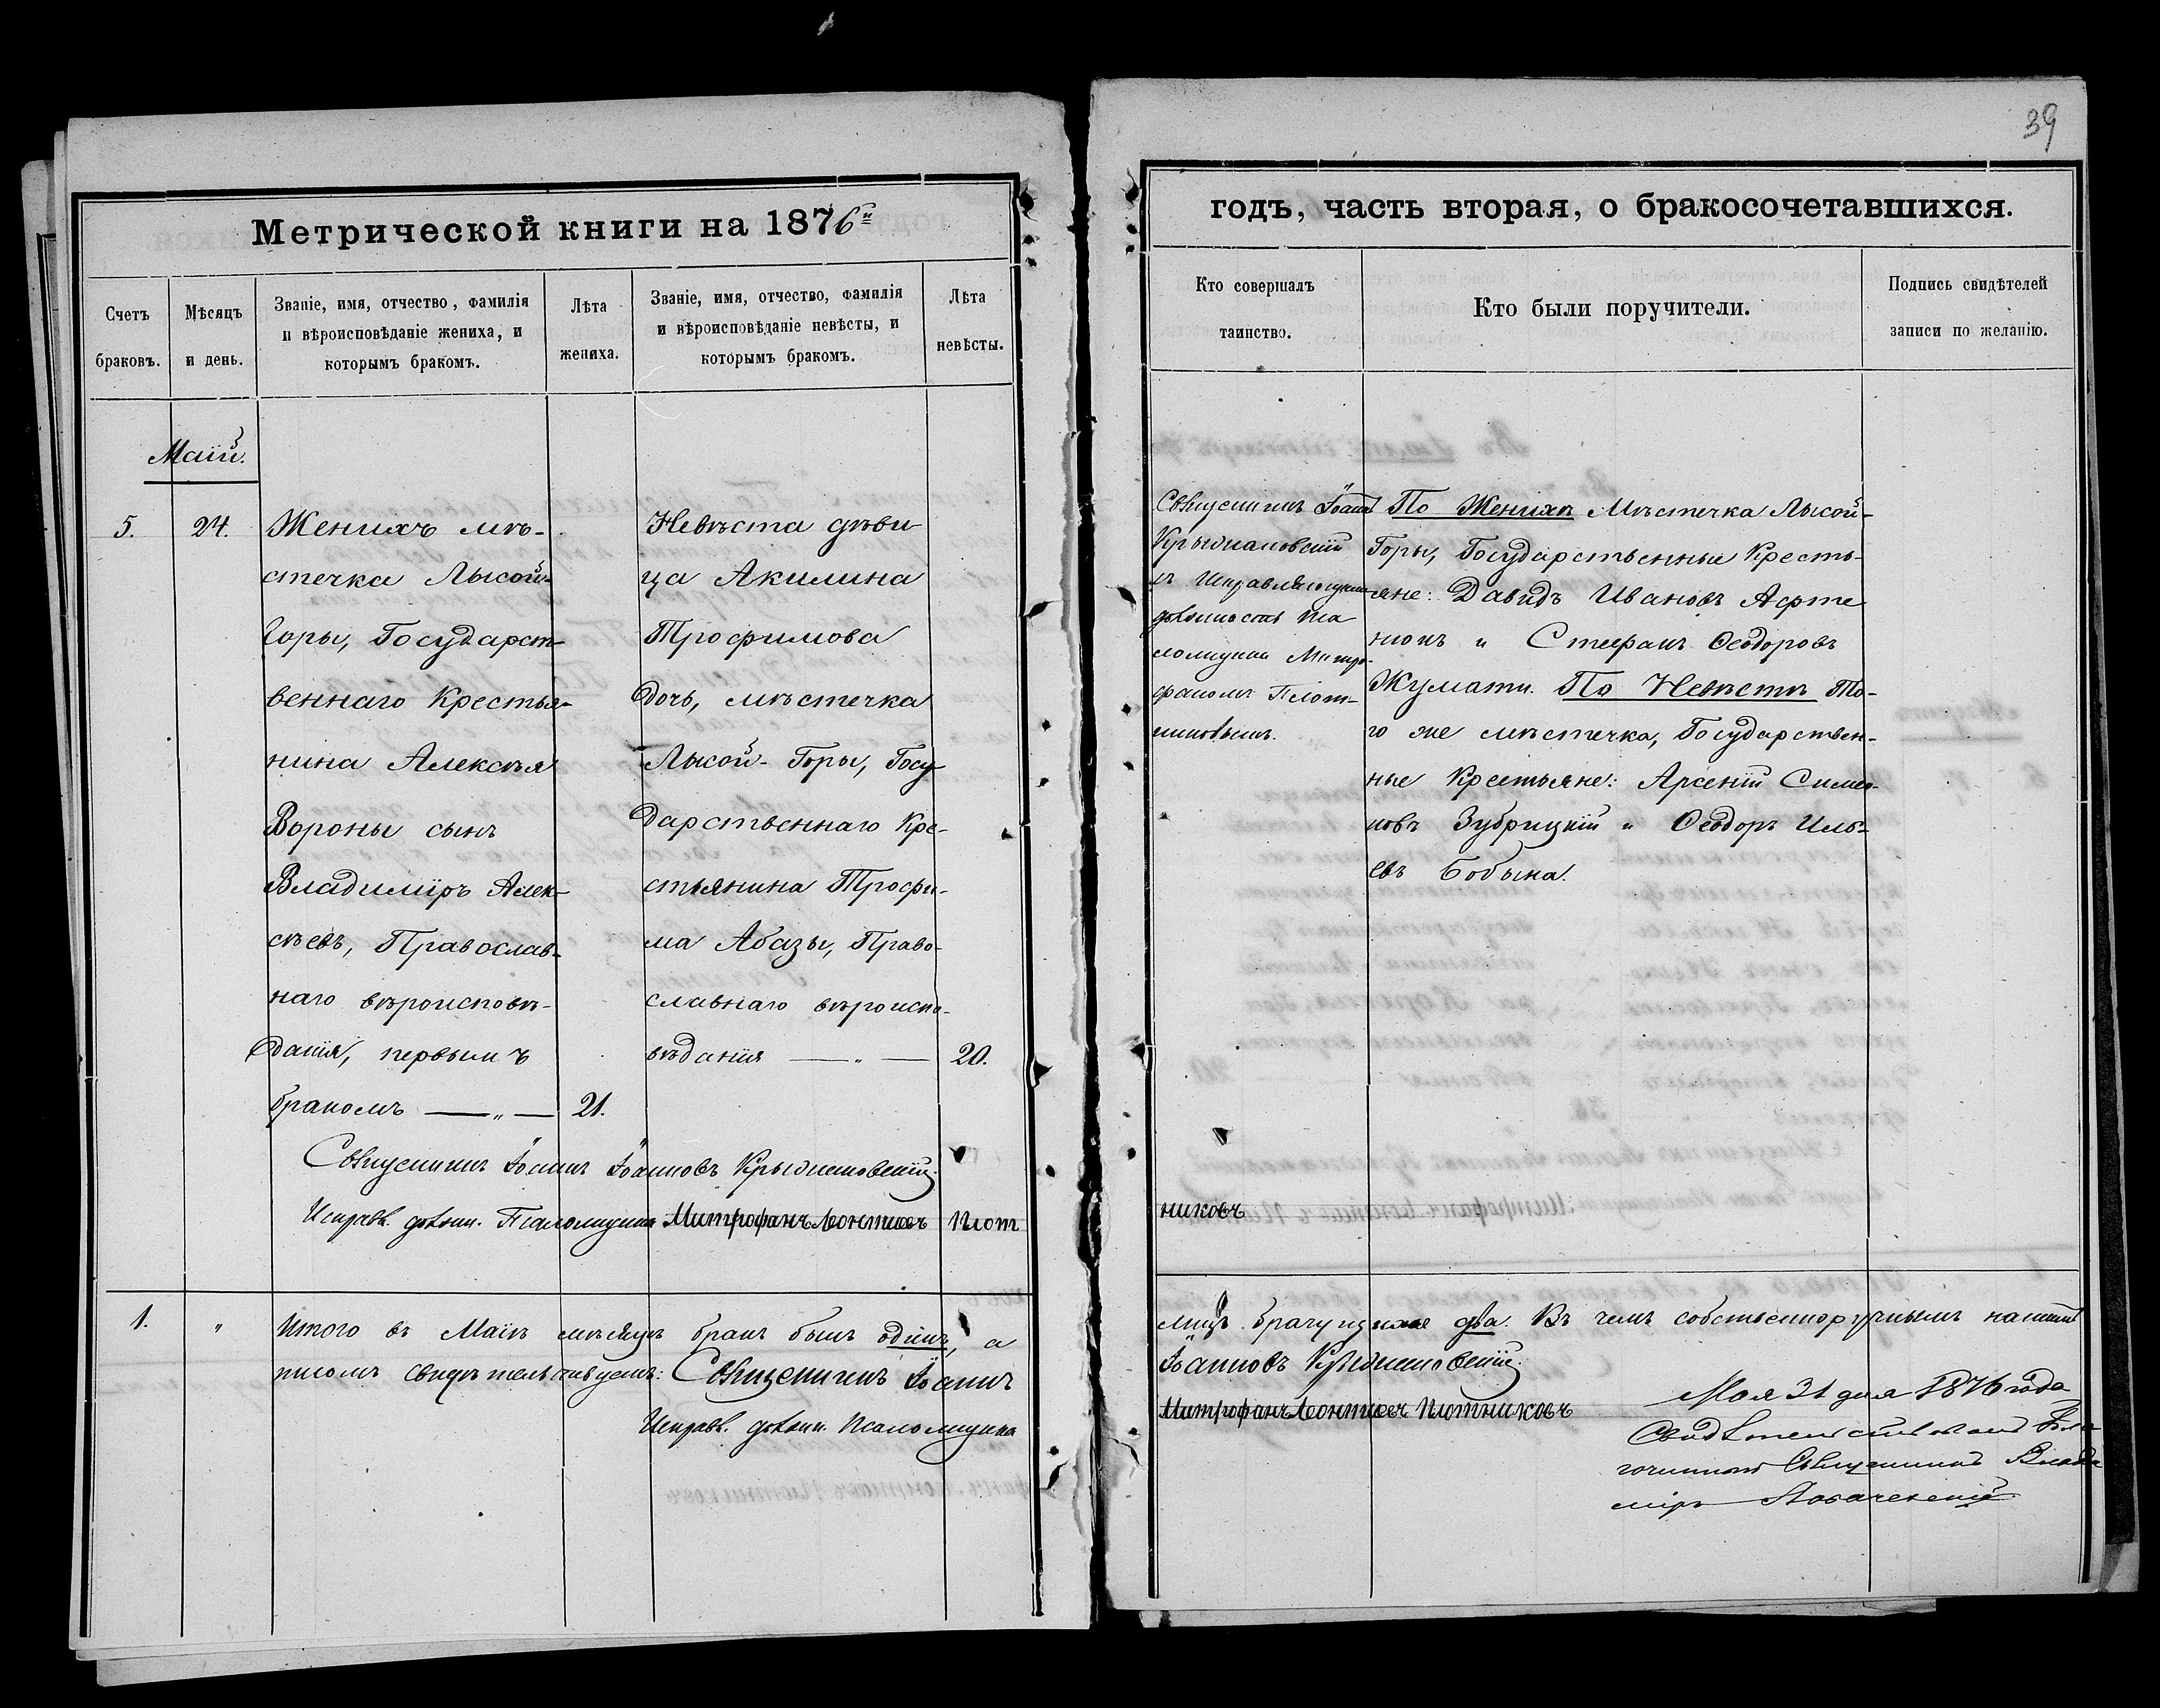 39
Метрической книги на 1876й
годъ, часть вторая, о бракосочетавшихся.
Счетъ
браковъ.
Мѣсяцъ
и день.
Званіе, имя, отчество, фамилія
и вѣроисповѣданіе жениха, и
которымъ бракомъ.
Лѣта
жениха.
Званіе, имя, отчество, фамилія
и вѣроисповѣданіе невѣсты, и
которымъ бракомъ.
Лѣта
невѣсты.
Кто совершалъ
таинство.
Кто были поручители.
Подпись свидѣтелей
записи по желанію.
Маій.
5.
24.
Женихъ мѣ-
стечка Лысой-
Горы, Государст-
веннаго Крестья-
нина Алексѣя
Вороны сынъ
Владиміръ Алек-
сѣевъ, Православ-
наго вѣроисповѣ-
данія, первымъ
бракомъ — „ —
21.
Невѣста дѣви
ца Акилина
Трофимова
дочь, мѣстечка
Лысой-Горы, Госу-
дарственнаго Кре-
стьянина Трофи-
ма Абазы, Право-
славнаго вѣроиспо-
вѣданія — „ —
20.
Священникъ Іоаннъ
Крыжановскій
съ Исправляющимъ
должность Пса
ломщика Митро-
фаномъ Плот-
никовымъ.
По Женихѣ Мѣстечка Лысой-
Горы, Государственные Кресть-
яне: Давидъ Ивановъ Афте
нюкъ и Стефанъ Ѳеодоровъ
Жумати. По Невѣстѣ То-
го же мѣстечка, Государствен-
ные Крестьяне: Арсеній Симео-
новъ Зубрицкій и Ѳеодоръ Иль-
евъ Бобына.
Священникъ Іоаннъ Іоанновъ Крыжановскій.
Исправл. должн. Псаломщика Митрофанъ Леонтиевъ Плот
никовъ
1.
„
Итого въ Маіѣ мѣсяцѣ бракъ былъ одинъ, а
лицъ брачущихся два. Въ чемъ собственноручнымъ нашимъ
писомъ свидѣтельствуемъ: Священникъ Іоаннъ
Іоанновъ Крыжановскій.
Исправл. должн. Псаломщика
Митрофанъ Леонтиевъ Плотниковъ
Мая 31 дня 1876 года
Свидѣтельствовалъ Бла
гочинный Священникъ Влади
міръ